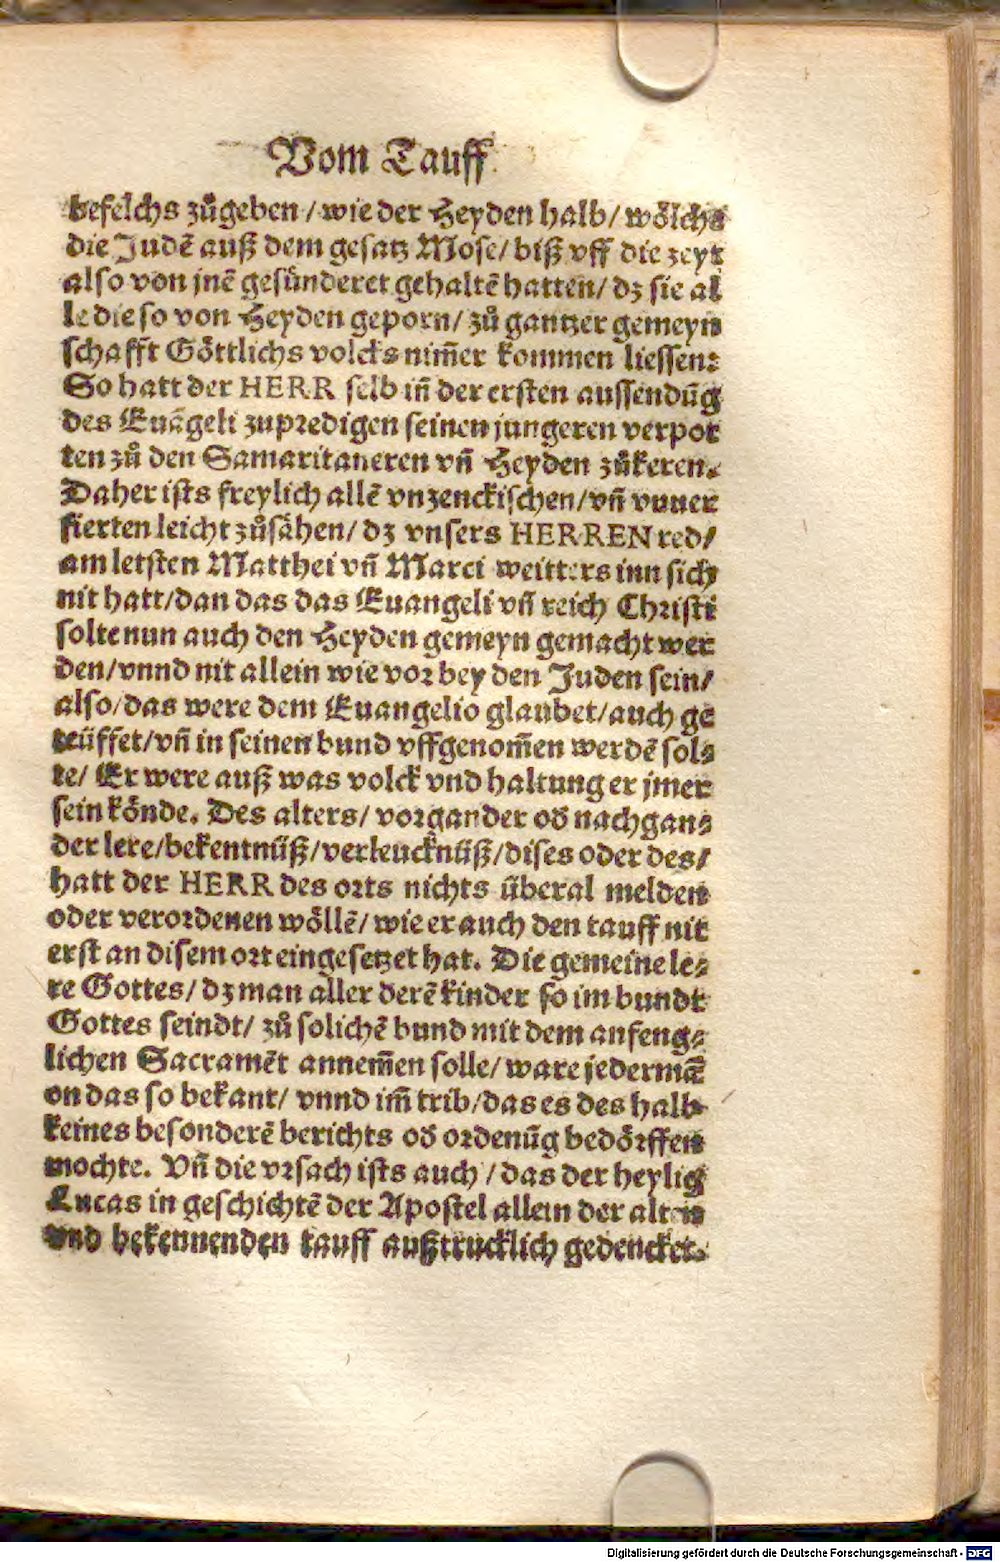 Vom Tauff
befelchs zůgeben / wie der Heyden halb / wölchs
die Judē auß dem gesatz Mose / biß vff die zeyt
also von jnē gesünderet gehaltē hatten / dz sie al
le die so von Heyden geporn / zů gantzer gemeyn
schafft Göttlichs volcks nim̄er kommen liessen:
So hatt der HERR selb in̄ der ersten aussendūg
des Euāgeli zupredigen seinen jungeren verpot
ten zů den Samaritaneren vn̄ Heyden zůkeren.
Daher ists freylich allē vnzenckischen / vn̄ vnuer
fierten leicht zůsähen / dz vnsers HERREN red /
am letsten Matthei vn̄ Marci weitters inn sich
nit hatt / dan das das Euangeli vn̄ reich Christi
solte nun auch den Heyden gemeyn gemacht wer
den / vnnd nit allein wie vor bey den Juden sein /
also / das were dem Euangelio glaubet / auch ge
teüffet / vn̄ in seinen bund vffgenom̄en werdē sol⸗
te / Er were auß was volck vnd haltung er jmer
sein könde. Des alters / vorgander od̄ nachgan⸗
der lere / bekentnüß / verleucknüß / dises oder des /
hatt der HERR des orts nichts überal melden
oder verordenen wöllē / wie er auch den tauff nit
erst an disem ort eingesetzet hat. Die gemeine le⸗
re Gottes / dz man aller derē kinder so im bundt
Gottes seindt / zů solichē bund mit dem anfeng⸗
lichen Sacramēt annem̄en solle / ware jedermā
on das so bekant / vnnd im̄ trib / das es des halb
keines besonderē berichts od̄ ordenūg bedörffen
mochte. Vn̄ die vrsach ists auch / das der heylig
Lucas in geschichtē der Apostel allein der alten
vnd bekennenden tauff außtrucklich gedencket.
Digitalisierung gefördert durch die Deutsche Forschungsgemeinschaft - DFG